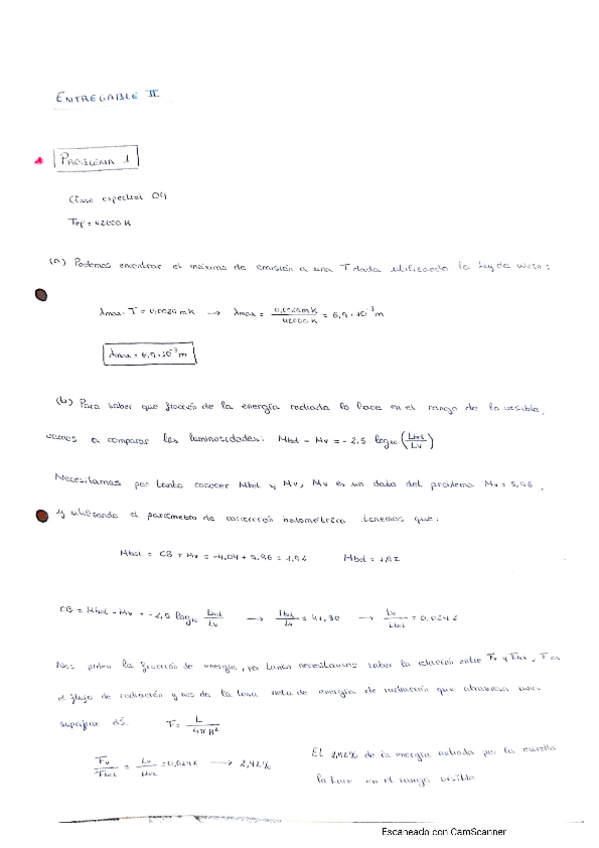 ENTREGABLE II
PROBLEMA 1
Clase espectral O4
Tef = 42000 K
(a) Podemos encontrar el máximo de emisión a una T dada utilizando la ley de Wien:
λmax · T = 0,0029 mK → λmax = 0,0029 mK / 42000 K = 6,9 · 10⁻⁸ m
λmax = 6,9 · 10⁻⁸ m
(b) Para saber que fracción de la energía radiada lo hace en el rango de lo visible,
vamos a comparar las luminosidades: Mbol - Mv = -2,5 log₁₀ (Lbol / Lv)
Necesitamos por tanto conocer Mbol y Mv, Mv es un dato del problema Mv = 5,96,
y utilizando el parámetro de corrección bolométrica tenemos que:
Mbol = CB + Mv = -4,04 + 5,96 = 1,92 Mbol = 1,92
CB = Mbol - Mv = -2,5 log₁₀ Lbol / Lv → Lbol / Lv = 41,30 → Lv / Lbol = 0,0242
Nos piden la fracción de energía, por tanto necesitamos saber la relación entre Fv y Fbol, F es
el flujo de radiación y nos da la tasa neta de energía de radiación que atraviesa una
superficie dS. F = L / 4πR²
Fv / Fbol = Lv / Lbol = 0,0242 → 2,42%
El 2,42% de la energía radiada por la estrella
lo hace en el rango visible
Escaneado con CamScanner